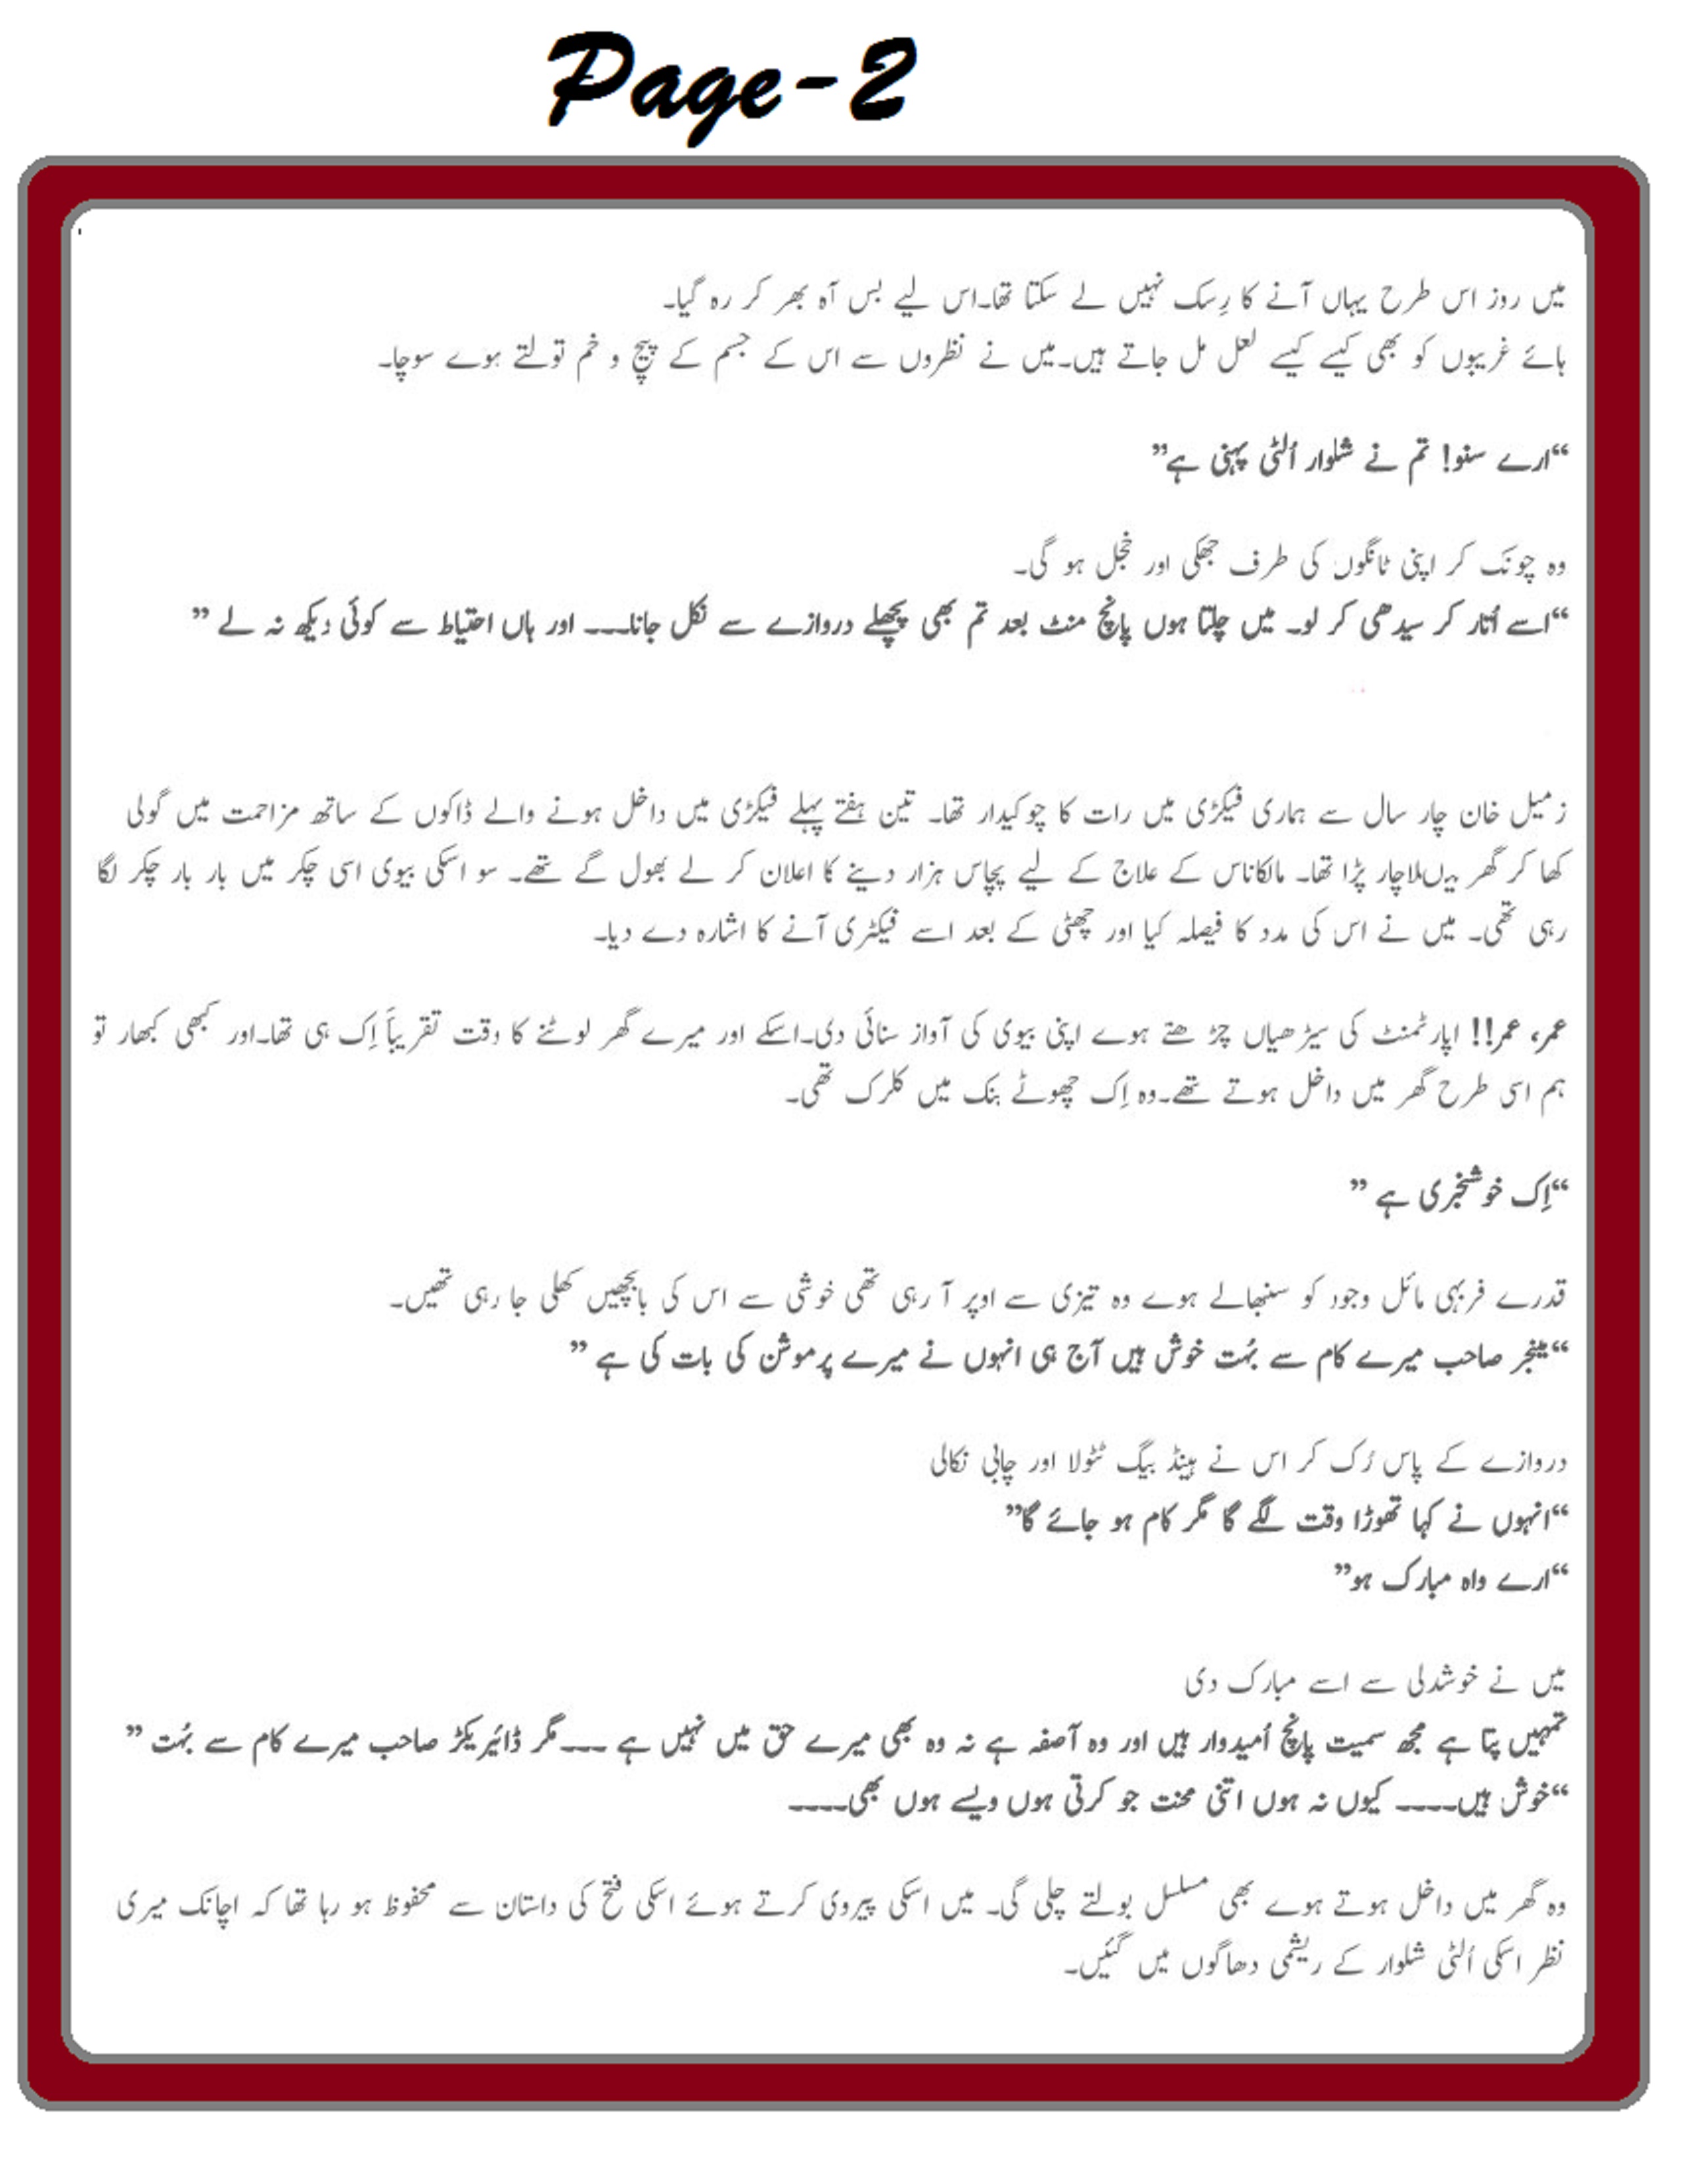 Page-2
میں روز اس طرح یہاں آنے کا رِسک نہیں لے سکتا تھا۔اس لیے بس آہ بھر کر رہ گیا۔
ہائے غریبوں کو بھی کیسے کیسے لعل مل جاتے ہیں۔میں نے نظروں سے اس کے جسم کے پیچ و خم تولتے ہوے سوچا۔
“ارے سنو! تم نے شلوار اُلٹی پہنی ہے”
وہ چونک کر اپنی ٹانگوں کی طرف جھکی اور خجل ہو گی۔
“اسے اُتار کر سیدھی کر لو۔ میں چلتا ہوں پانچ منٹ بعد تم بھی پچھلے دروازے سے نکل جانا۔۔۔ اور ہاں احتیاط سے کوئی دیکھ نہ لے ”
زمیل خان چار سال سے ہماری فیکڑی میں رات کا چوکیدار تھا۔ تین ہفتے پہلے فیکڑی میں داخل ہونے والے ڈاکوں کے ساتھ مزاحمت میں گولی
کھا کر گھر میںلاچار پڑا تھا۔ مالکاناس کے علاج کے لیے پچاس ہزار دینے کا اعلان کر لے بھول گے تھے۔ سو اسکی بیوی اسی چکر میں بار بار چکر لگا
رہی تھی۔ میں نے اس کی مدد کا فیصلہ کیا اور چھٹی کے بعد اسے فیکٹری آنے کا اشارہ دے دیا۔
عمر، عمر!! اپارٹمنٹ کی سیڑھیاں چڑھتے ہوے اپنی بیوی کی آواز سنائی دی۔اسکے اور میرے گھر لوٹنے کا وقت تقریباََ اِک ہی تھا۔اور کبھی کبھار تو
ہم اسی طرح گھر میں داخل ہوتے تھے۔وہ اِک چھوٹے بنک میں کلرک تھی۔
“اِک خوشخبری ہے ”
قدرے فربہی مائل وجود کو سنبھالے ہوے وہ تیزی سے اوپر آ رہی تھی خوشی سے اس کی بانچھیں کھلی جا رہی تھیں۔
“مینجر صاحب میرے کام سے بہُت خوش ہیں آج ہی انہوں نے میرے پرموشن کی بات کی ہے ”
دروازے کے پاس رُک کر اس نے ہینڈ بیگ ٹٹولا اور چابی نکالی
“انہوں نے کہا تھوڑا وقت لگے گا مگر کام ہو جائے گا”
“ارے واہ مبارک ہو”
میں نے خوشدلی سے اسے مبارک دی
تمہیں پتا ہے مجھ سمیت پانچ اُمیدوار ہیں اور وہ آصفہ ہے نہ وہ بھی میرے حق میں نہیں ہے ۔۔۔مگر ڈائیریکڑ صاحب میرے کام سے بہُت ”
“خوش ہیں۔۔۔۔ کیوں نہ ہوں اتنی محنت جو کرتی ہوں ویسے ہوں بھی۔۔۔۔
وہ گھر میں داخل ہوتے ہوے بھی مسلسل بولتے چلی گی۔ میں اسکی پیروی کرتے ہوئے اسکی فتح کی داستان سے محفوظ ہو رہا تھا کہ اچانک میری
نظر اسکی اُلٹی شلوار کے ریشمی دھاگوں میں گیئں۔